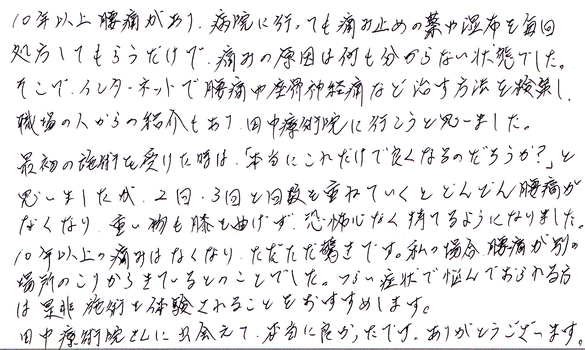 10年以上腰痛があり、病院に行っても痛み止めの薬や湿布を毎回
処方してもらうだけで、痛みの原因は何も分からない状態でした。
そこで、インターネットで腰痛や座骨神経痛など治す方法を検索し、
職場の人からの紹介もあり、田中療術院に行こうと思いました。
最初の施術を受けた時は、「本当にこれだけで良くなるのだろうか?」と
思いましたが、2回、3回と回数を重ねていくとどんどん腰痛が
なくなり、重い物も膝も曲げず、恐怖心なく持てるようになりました。
10年以上の痛みはなくなり、ただただ驚きです。私の場合、腰痛が別の
場所のこりからきているとのことでした。つらい症状で悩んでおられる方
は是非施術を体験されることをおすすめします。
田中療術院さんに出会えて、本当に良かったです。ありがとうございます。